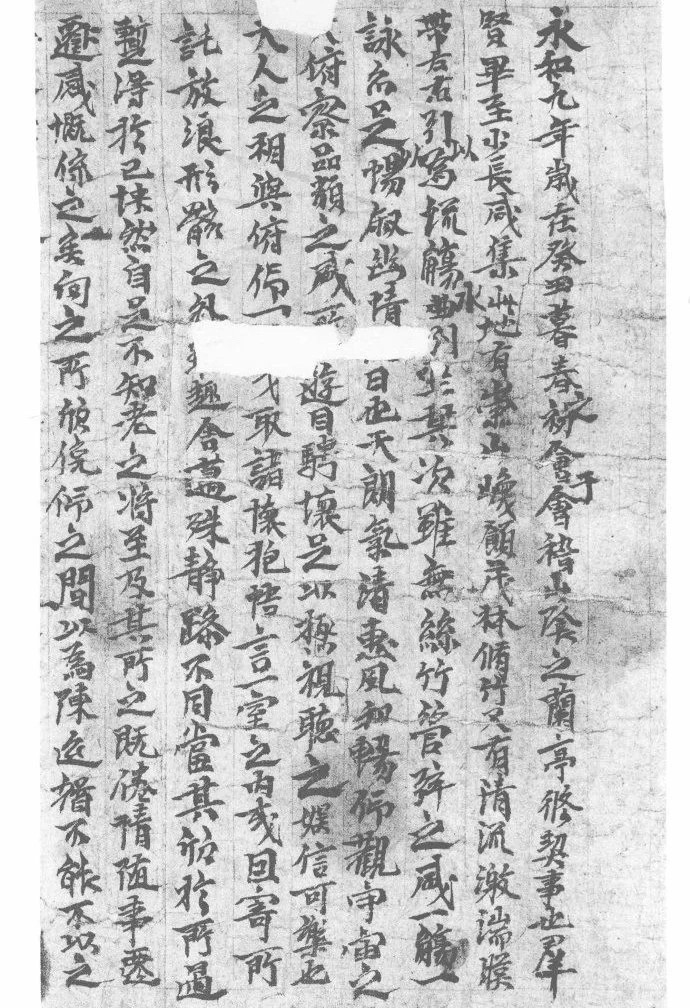 永和九年歲在癸丑暮春之初會于會稽山陰之蘭亭修契事也群
賢畢至小長咸集此地有崇山領茂林脩竹又有清流激湍
帶左右引以為流觴曲水列坐其次雖無絲竹管弦之盛一觴一
詠亦足以暢敘幽情日也天朗氣清惠風和暢仰觀宇宙之
俯察品類之盛所遊目騁懷足以極視聽之娛信可樂也
夫人之相與俯仰一或取諸懷抱悟言一室之內或因寄所
託放浪形骸之趣舍萬殊靜躁不同當其欣於所遇
暫得於己快然自足不知老之將至及其所之既倦情隨事遷
感慨係之矣向之所欣俛仰之間以為陳迹猶不能不以之